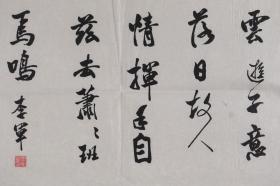 雲遊子意
落日故人
情揮手自
茲去蕭〻班
馬鳴 李軍